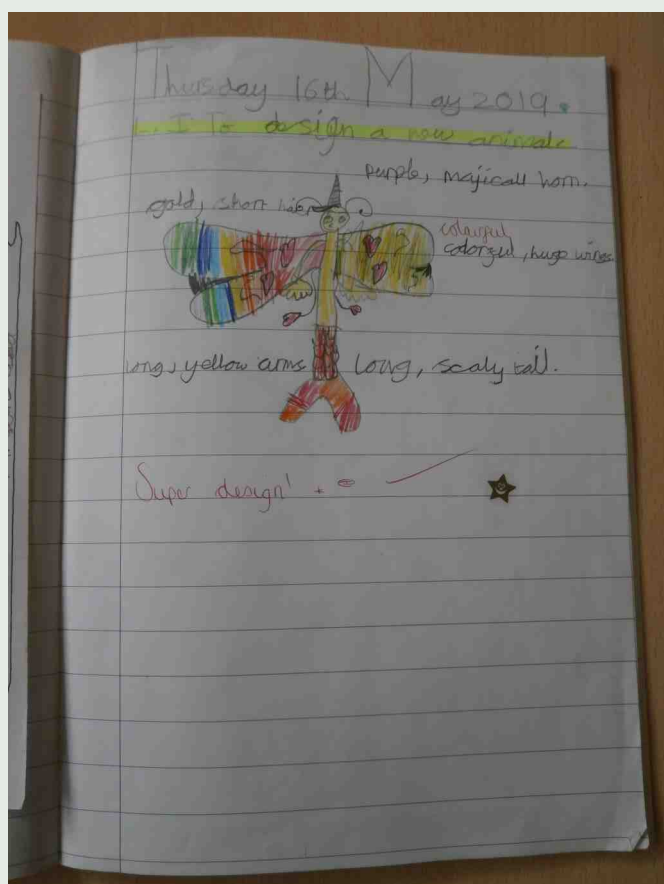 Thursday 16th May 2019.
L.I To design a new animal.
purple, majicall horn.
gold, short hair
colourful
colorful, huge wings.
long, yellow arms
long, scaly tail.
Super design!